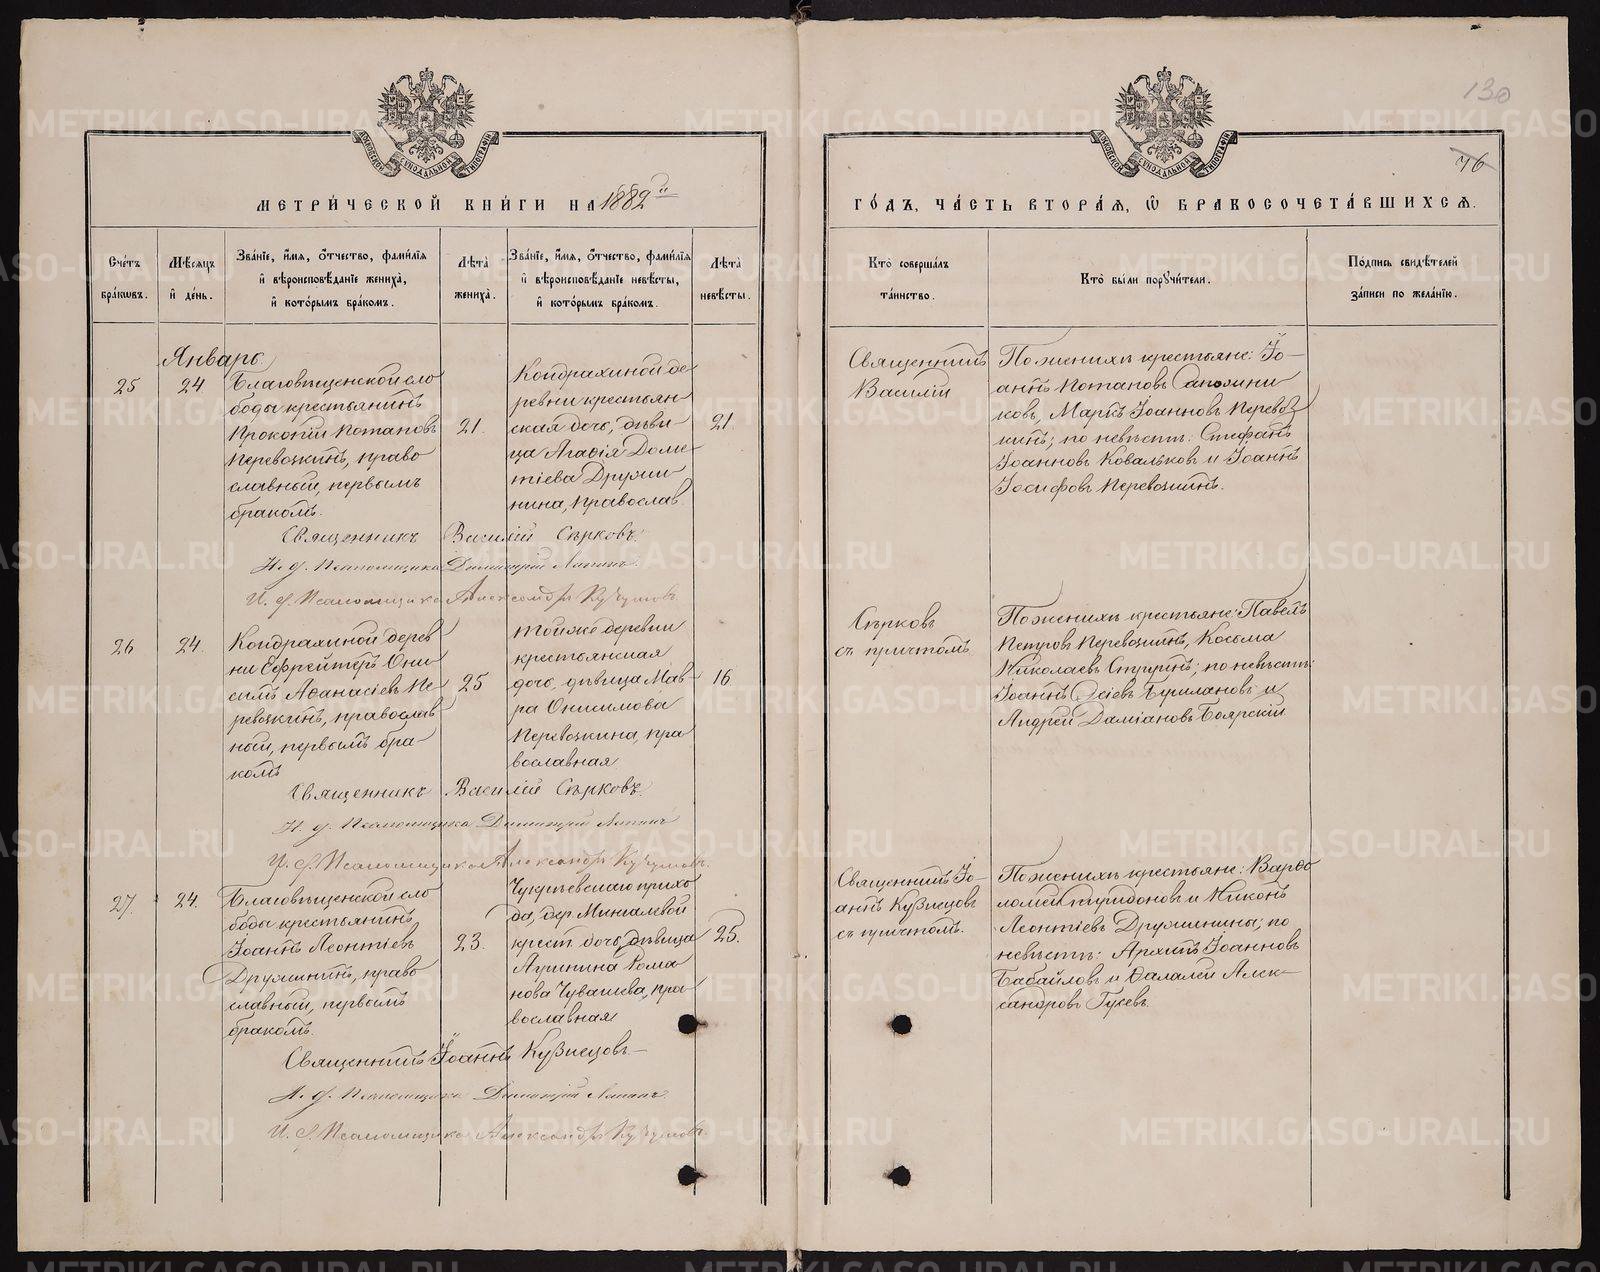 130
76
МЕТРИ́ЧЕСКОЙ КНИ́ГИ НА 1882й
ГО́ДЪ, ЧА́СТЬ ВТОРА́Я, Ѡ БРАКОСОЧЕТА́ВШИХСЯ.
Сче́тъ бра́кѡвъ.
Мѣ́сяцъ и҆ де́нь.
Зва́нїе, и҆́мя, ѻ҆́тчество, фами́лїя
и҆ вѣроисповѣ́данїе жениха̀,
и҆ кото́рымъ бра́комъ.
Лѣта̀ жениха̀.
Зва́нїе, и҆́мя, ѻ҆́тчество, фами́лїя
и҆ вѣроисповѣ́данїе невѣ́сты,
и҆ кото́рымъ бра́комъ.
Лѣта̀ невѣ́сты.
Кто̀ соверша́лъ та́инство.
Кто̀ бы́ли порꙋчи́тели.
По́дпись свидѣ́телей
за́писи по жела́нїю.
Январь
25
24
Благовѣщенской сло
боды крестьянинъ
Прокопій Потаповъ
Перевозкинъ, право
славный, первымъ
бракомъ.
21.
Кондрахиной де
ревни крестьян-
ская дочь, дѣви-
ца Агаѳія Доме-
тіева Дружи
нина, православ.
21.
Священникъ
Василій
По женихѣ крестьяне: Іо-
аннъ Потаповъ Сапожни
ковъ, Маркъ Іоанновъ Перевоз
кинъ; по невѣстѣ: Стефанъ
Іоанновъ Ковальковъ и Іоаннъ
Іосифовъ Перевозкинъ.
Священникъ Василій Сѣрковъ.
И. д. Псаломщика Димитрій Лапинъ.
И. д. Псаломщика Александръ Кучумовъ.
26
24.
Кондрахиной дерев
ни Ефрейтеръ Они
симъ Аѳанасіевъ Пе
ревозкинъ, православ
ный, первымъ бра-
комъ
25
тойже деревни
крестьянская
дочь, дѣвица Мав-
ра Онисимова
Перевозкина, пра
вославная
16.
Сѣрковъ
съ причтомъ.
По женихѣ крестьяне: Павелъ
Петровъ Перевозкинъ, Косьма
Николаевъ; по невѣстѣ:
Іоаннъ и
Андрей Даміановъ Боярскій.
Священникъ Василій Сѣрковъ.
И. д. Псаломщика Димитрій Лапинъ
И. д. Псаломщика Александръ Кучумовъ.
27.
24.
Благовѣщенской сло
боды крестьянинъ
Іоаннъ Леонтіевъ
Дружининъ, право
славный, первымъ
бракомъ.
23.
прихо
да, дер. Минхалевой
крест. дочь, дѣвица
Рома
нова Чувашева, пра-
вославная
25.
Священникъ Іо-
аннъ Кузнецовъ
съ причтомъ.
По женихѣ крестьяне: Варѳо
ломей Спиридоновъ и Никонъ
Леонтіевъ Дружинины; по
невѣстѣ: Архипъ Іоанновъ
Бабайловъ и Ѳалалей Алек-
сандровъ Гусевъ.
Священникъ Іоаннъ Кузнецовъ
И. д. Псаломщика Димитрій Лапинъ.
И. д. Псаломщика Александръ Кучумовъ.
METRIKI.GASO-URAL.RU